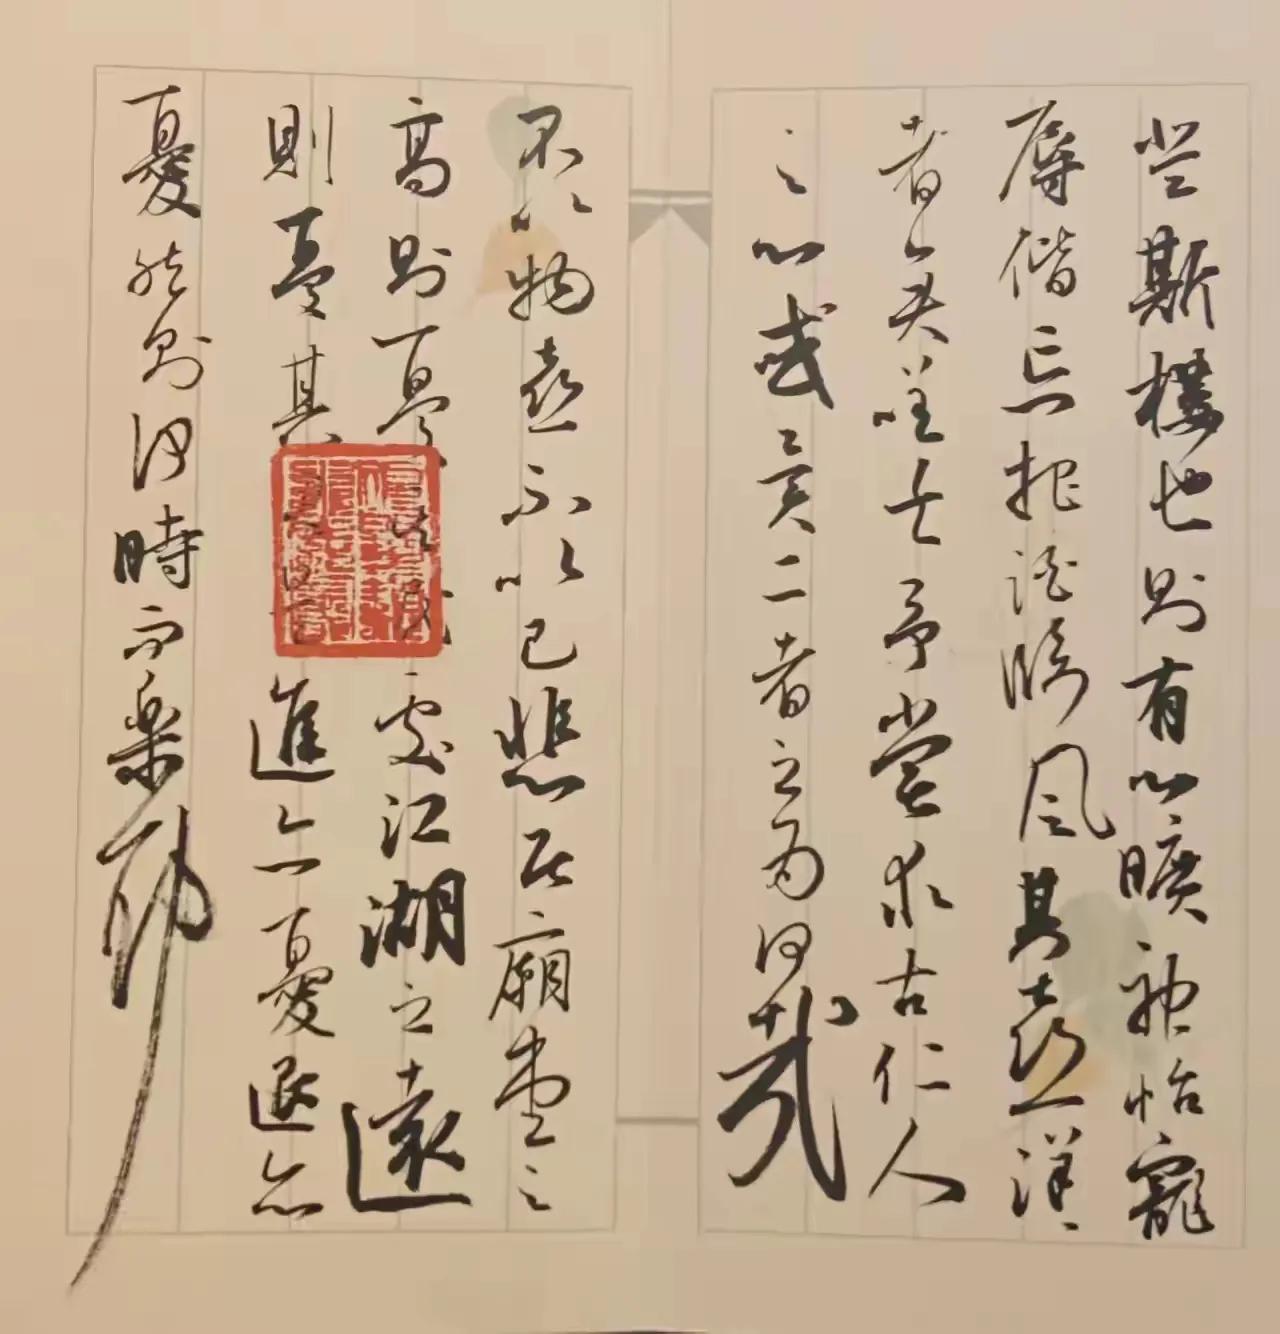 登斯樓也則有心曠神怡寵
辱偕忘把酒臨風其喜洋洋
者矣嗟夫予嘗求古仁人
之心或異二者之為何哉
不以物喜不以己悲居廟堂之
高則憂其民處江湖之遠
則憂其君是進亦憂退亦
憂然則何時而樂耶